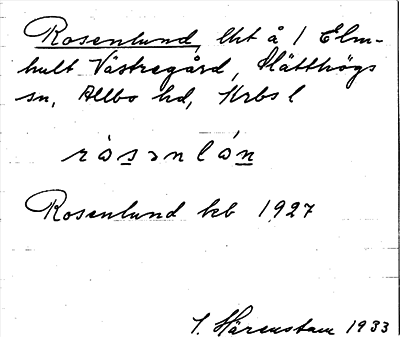 Rosenlund, lht å 1 Elm-
hult Västregård, Slätthögs
sn, Allbo hd, Krbs l
ròsənlón
Rosenlund kb 1927
I. Härenstam 1933